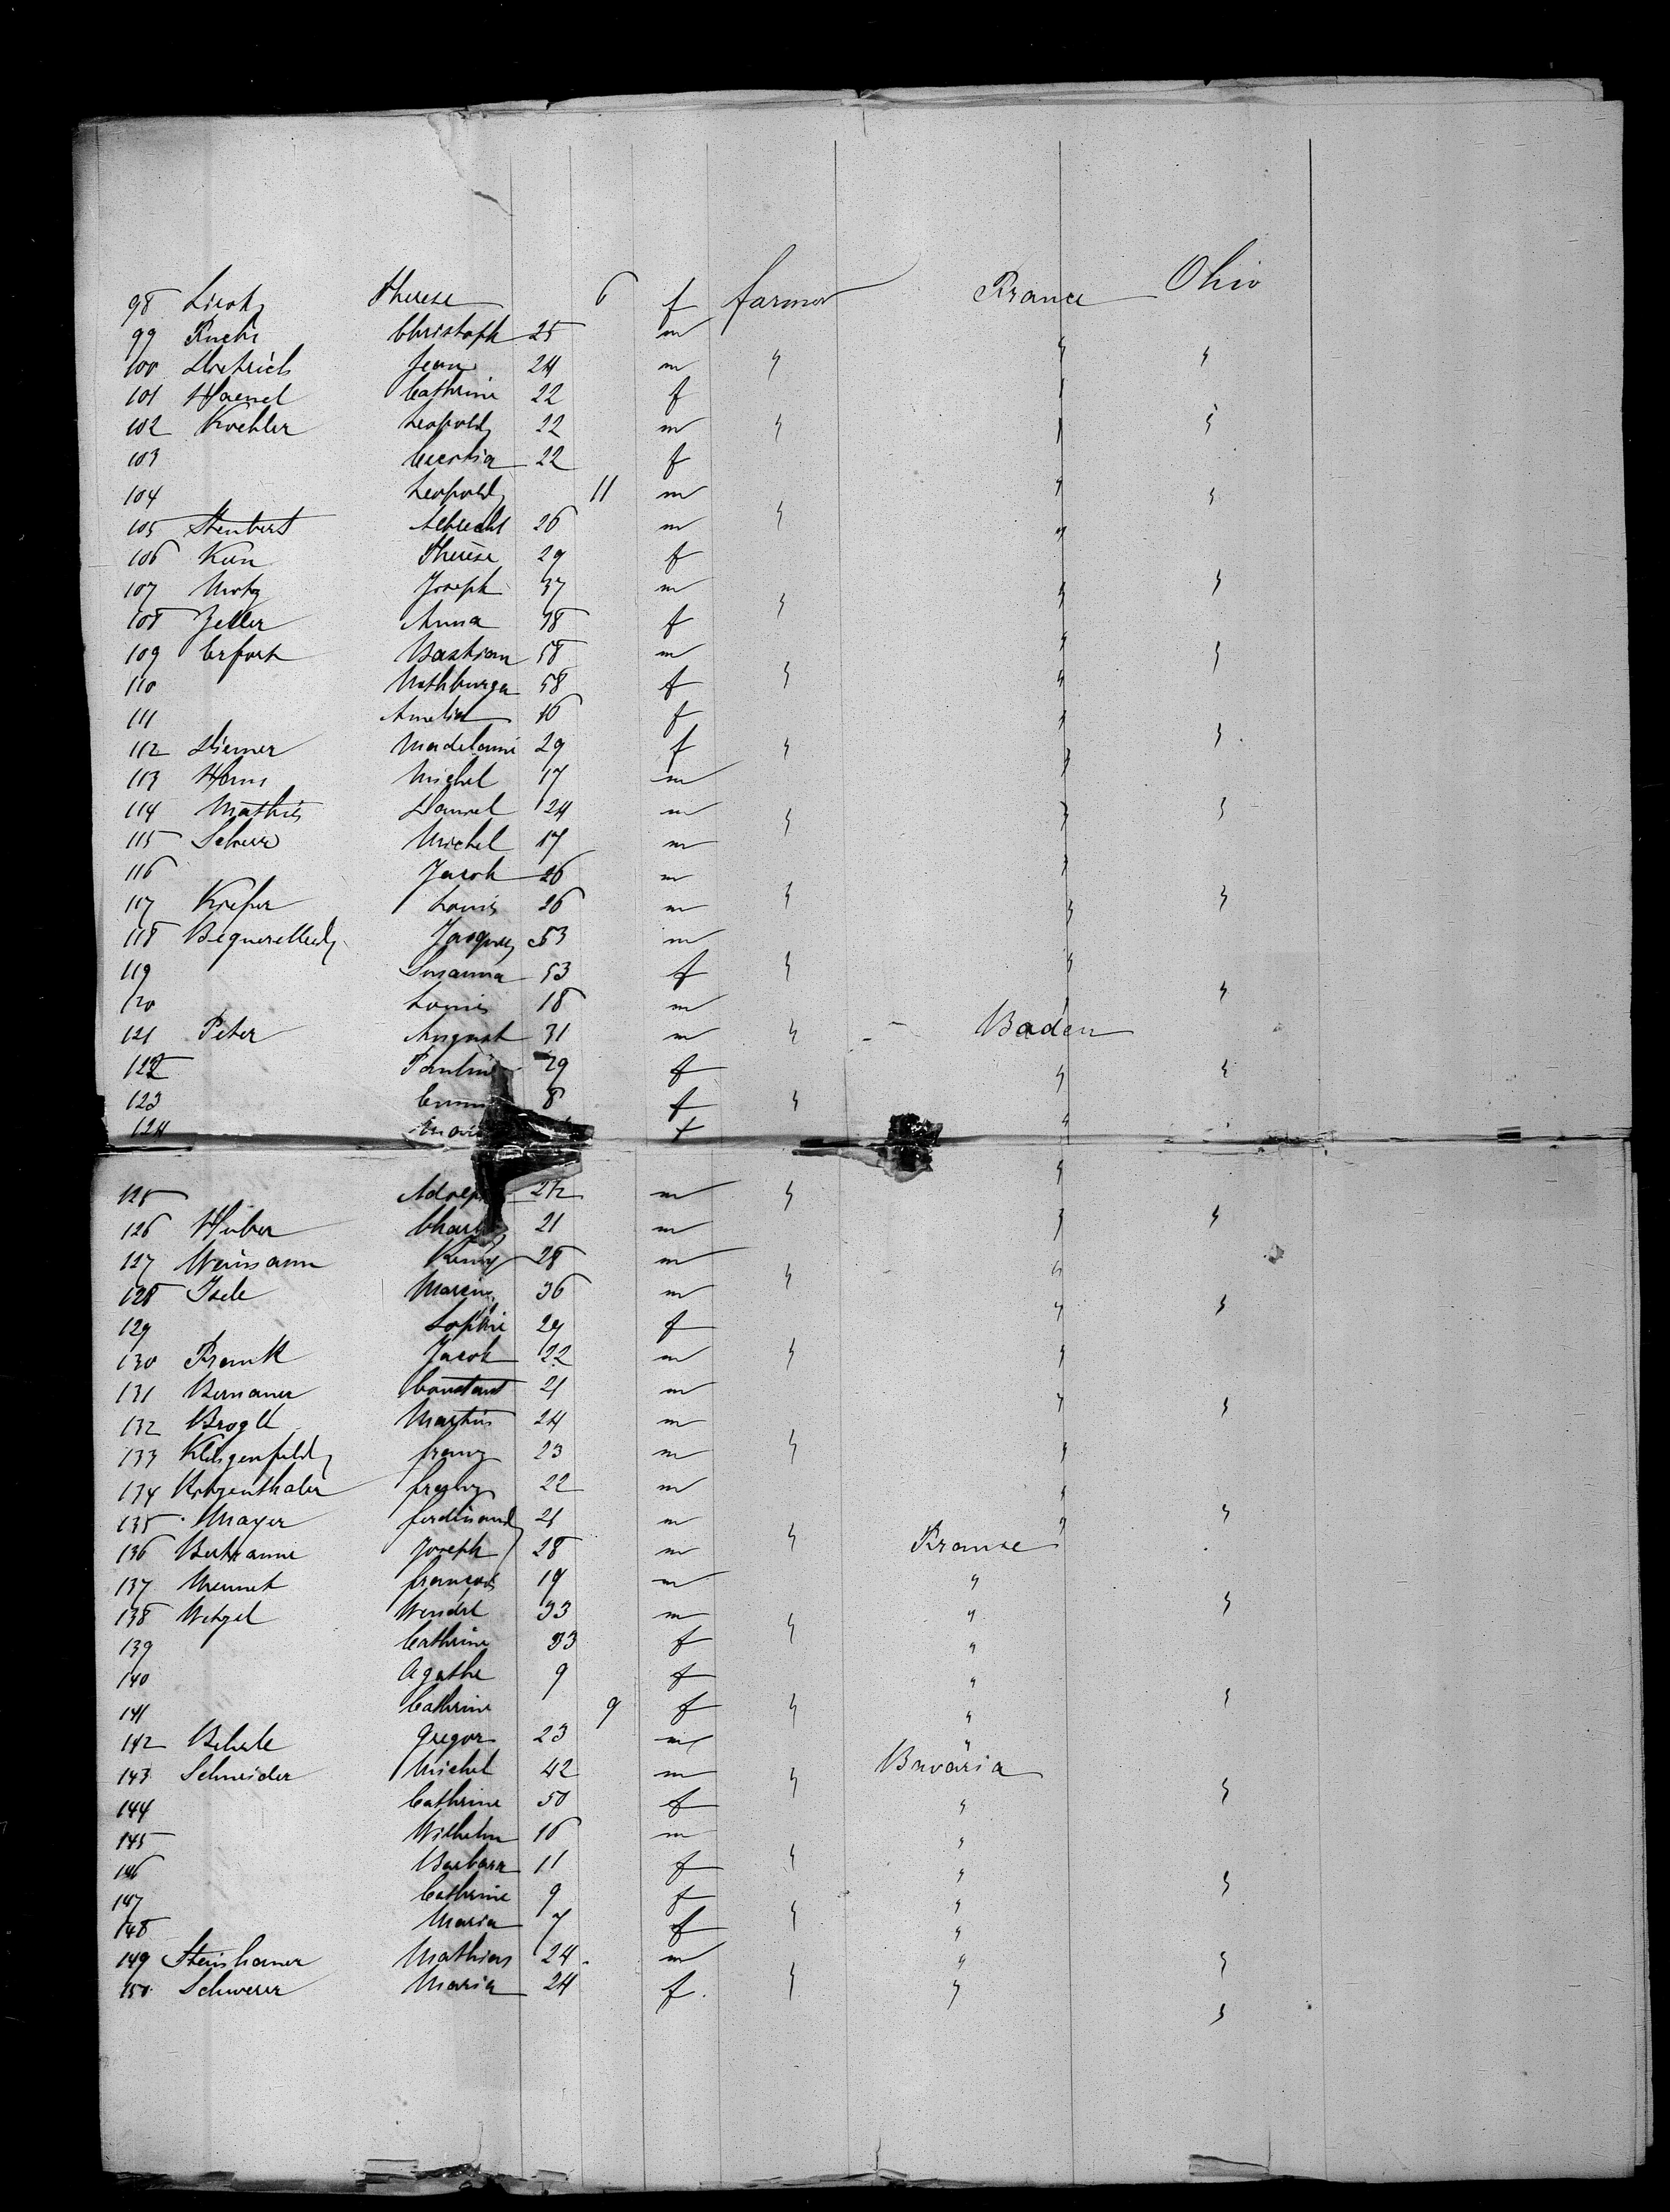 98 Therese 6 f farmer France Ohio
99 Fuchs Christoph 25 m
100 Dietrich Jean 24 m " " "
101 Haenel Cathrine 22 f "
102 Koehler Leopold 22 m " " "
103 22 f
104 Leopold 11 m " "
105 Steubert Albrecht 26 m " "
106 Kun Therèse 29 f
107 Motz Joseph 37 m " "
108 Zeller Anna 18 f "
109 Erfort Bastian 58 m " "
110 Nothburga 58 f " "
111 Amelia 16 f "
112 Diemer Madelaine 29 f " " "
113 Hans Michel 17 m
114 Mathis Daniel 24 m " "
115 Scheur Michel 17 m "
116 Jacob 26 m "
117 Kiefer Louis 26 m " " "
118 Jacques 53 m
119 Susanna 53 f " "
120 Louis 18 m " "
121 Peter August 31 m " Baden
122 Pauline 29 f " "
123 8 f "
124 f "
125 m " "
126 Huber 21 m " "
127 Weinmann 28 m "
128 Isele 36 m " " "
129 Sophie 29 f
130 Frank Jacob 22 m " "
131 Bernauer Constant 21 m
132 Brogle Martin 24 m " "
133 Klingenfeld Franz 23 m " "
134 22 m "
135 Mayer Ferdinand 21 m " "
136 Joseph 28 m " France
137 Mennet François 19 m "
138 Wetzel Wendel 33 m " " "
139 Cathrine 33 f "
140 Agathe 9 f "
141 Cathrine 9 f " " "
142 Gregor 23 m "
143 Schneider Michel 42 m " Bavaria
144 Cathrine 50 f " "
145 Wilhelm 16 m "
146 Barbara 11 f " " "
147 Cathrine 9 f "
148 Maria 7 f " "
149 Steinhauer Mathias 24 m " "
150 Schwerer Maria 24 f. " " "